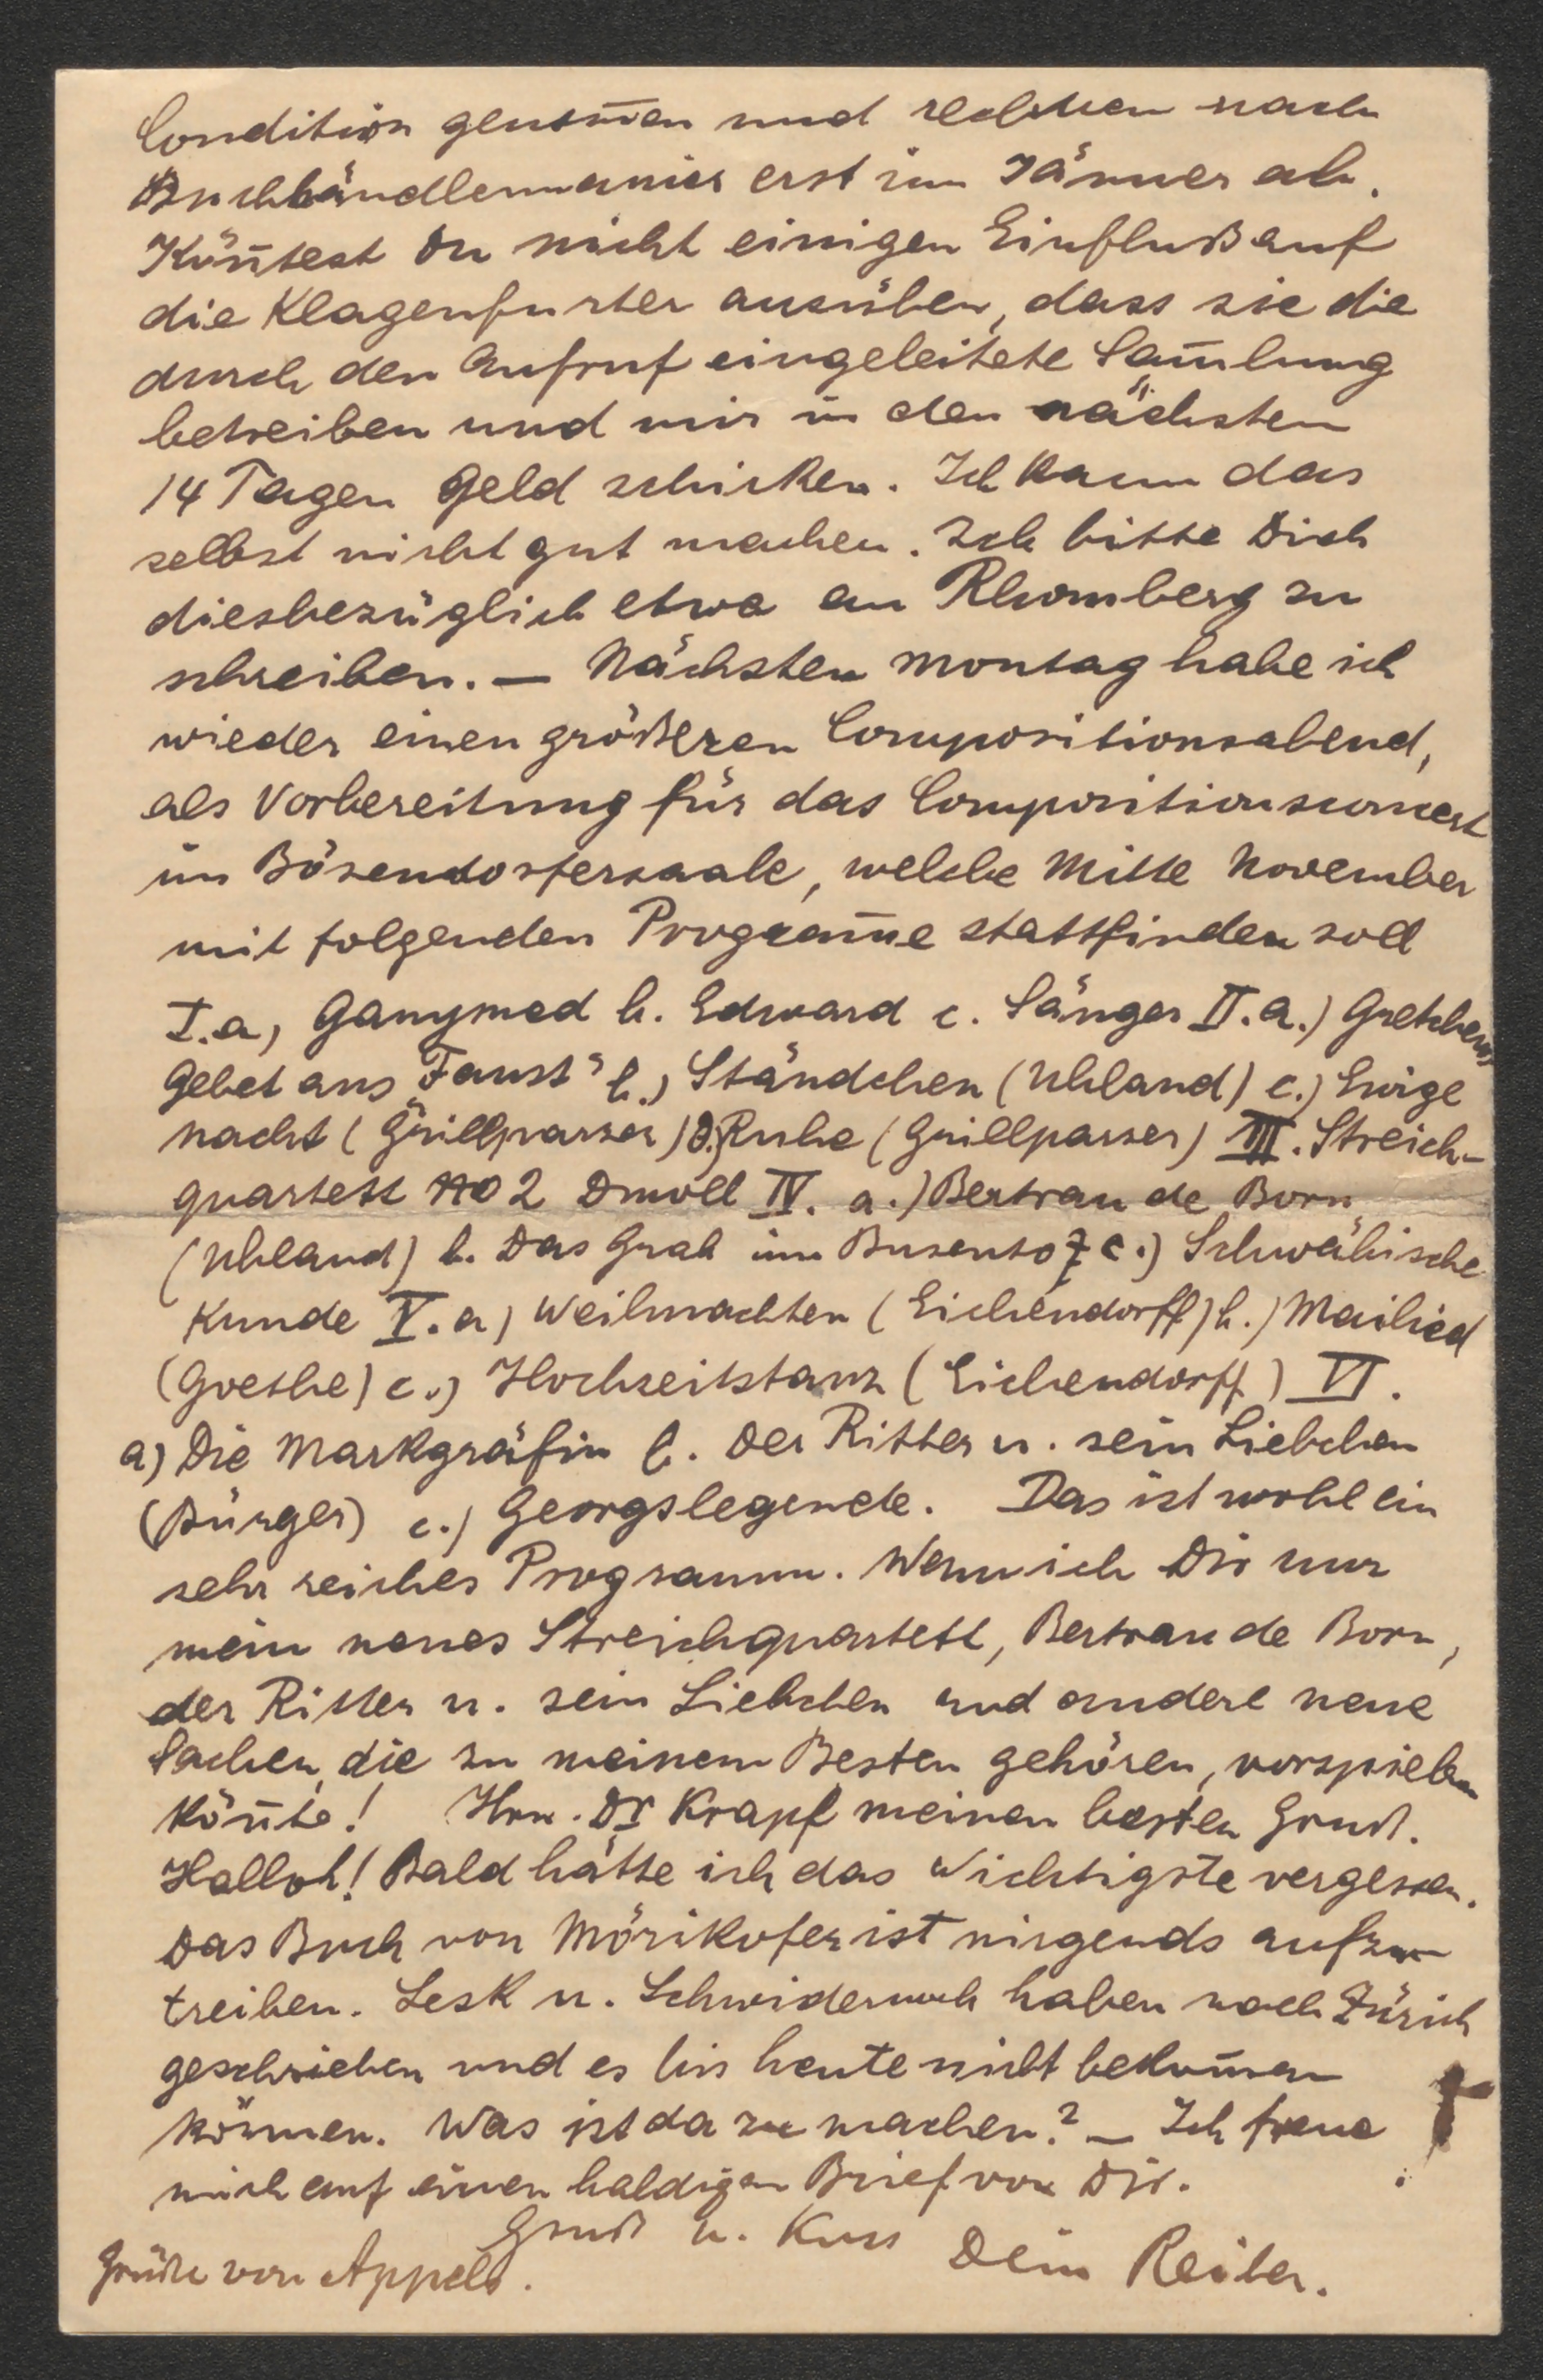 Condition genom̄en und rechnen nach
Buchhändlermanier erst im Jänner ab.
Kön̄test Du nicht einigen Einfluß auf
die Klagenfurter ausüben, dass sie die
durch den Aufruf eingeleitete Sam̄lung
betreiben und mir in den nächsten
14 Tagen Geld schicken. Ich kann das
selbst nicht gut machen. Ich bitte Dich
diesbezüglich etwa an Rhomberg zu
schreiben. — Nächsten Montag habe ich
wieder einen größeren Compositionsabend,
als Vorbereitung für das Compositionsconcert
im Bösendorfersaale, welche Mitte November
mit folgenden Program̄e stattfinden soll
I. a, Ganymed b. Edward c. Sänger II. a.) Gretchens
Gebet aus „Faust" b.) Ständchen (Uhland) c.) Ewige
Nacht (Grillparzer) d.) Ruhe (Grillparzer) III. Streich-
quartett No 2 Dmoll IV. a.) Bertran de Born
(Uhland) b. Das Grab im Busento c.) Schwäbische
Kunde V. a) Weihnachten (Eichendorff) b.) Mailied
(Goethe) c.) Hochzeitstanz (Eichendorff) VI.
a) Die Markgräfin b. Der Ritter u. sein Liebchen
(Bürger) c.) Georgslegende. Das ist wohl ein
sehr reiches Programm. Wenn ich Dir nur
mein neues Streichquartett, Bertran de Born,
der Ritter u. sein Liebchen und andere neue
Sachen, die zu meinem Besten gehören, vorspielen
kön̄te! Hrn. Dr Krapf meinen besten Gruß.
Halloh! Bald hätte ich das Wichtigste vergessen.
Das Buch von Mörikofer ist nirgends aufzu
treiben. Lesk u. Schwidernoch haben nach Zürich
geschrieben und es bis heute nicht bekom̄en
können. Was ist da zu machen? — Ich freue
mich auf einen baldigen Brief von Dir.
Gruß u. Kuss Dein Reiter.
Grüße von Appels.